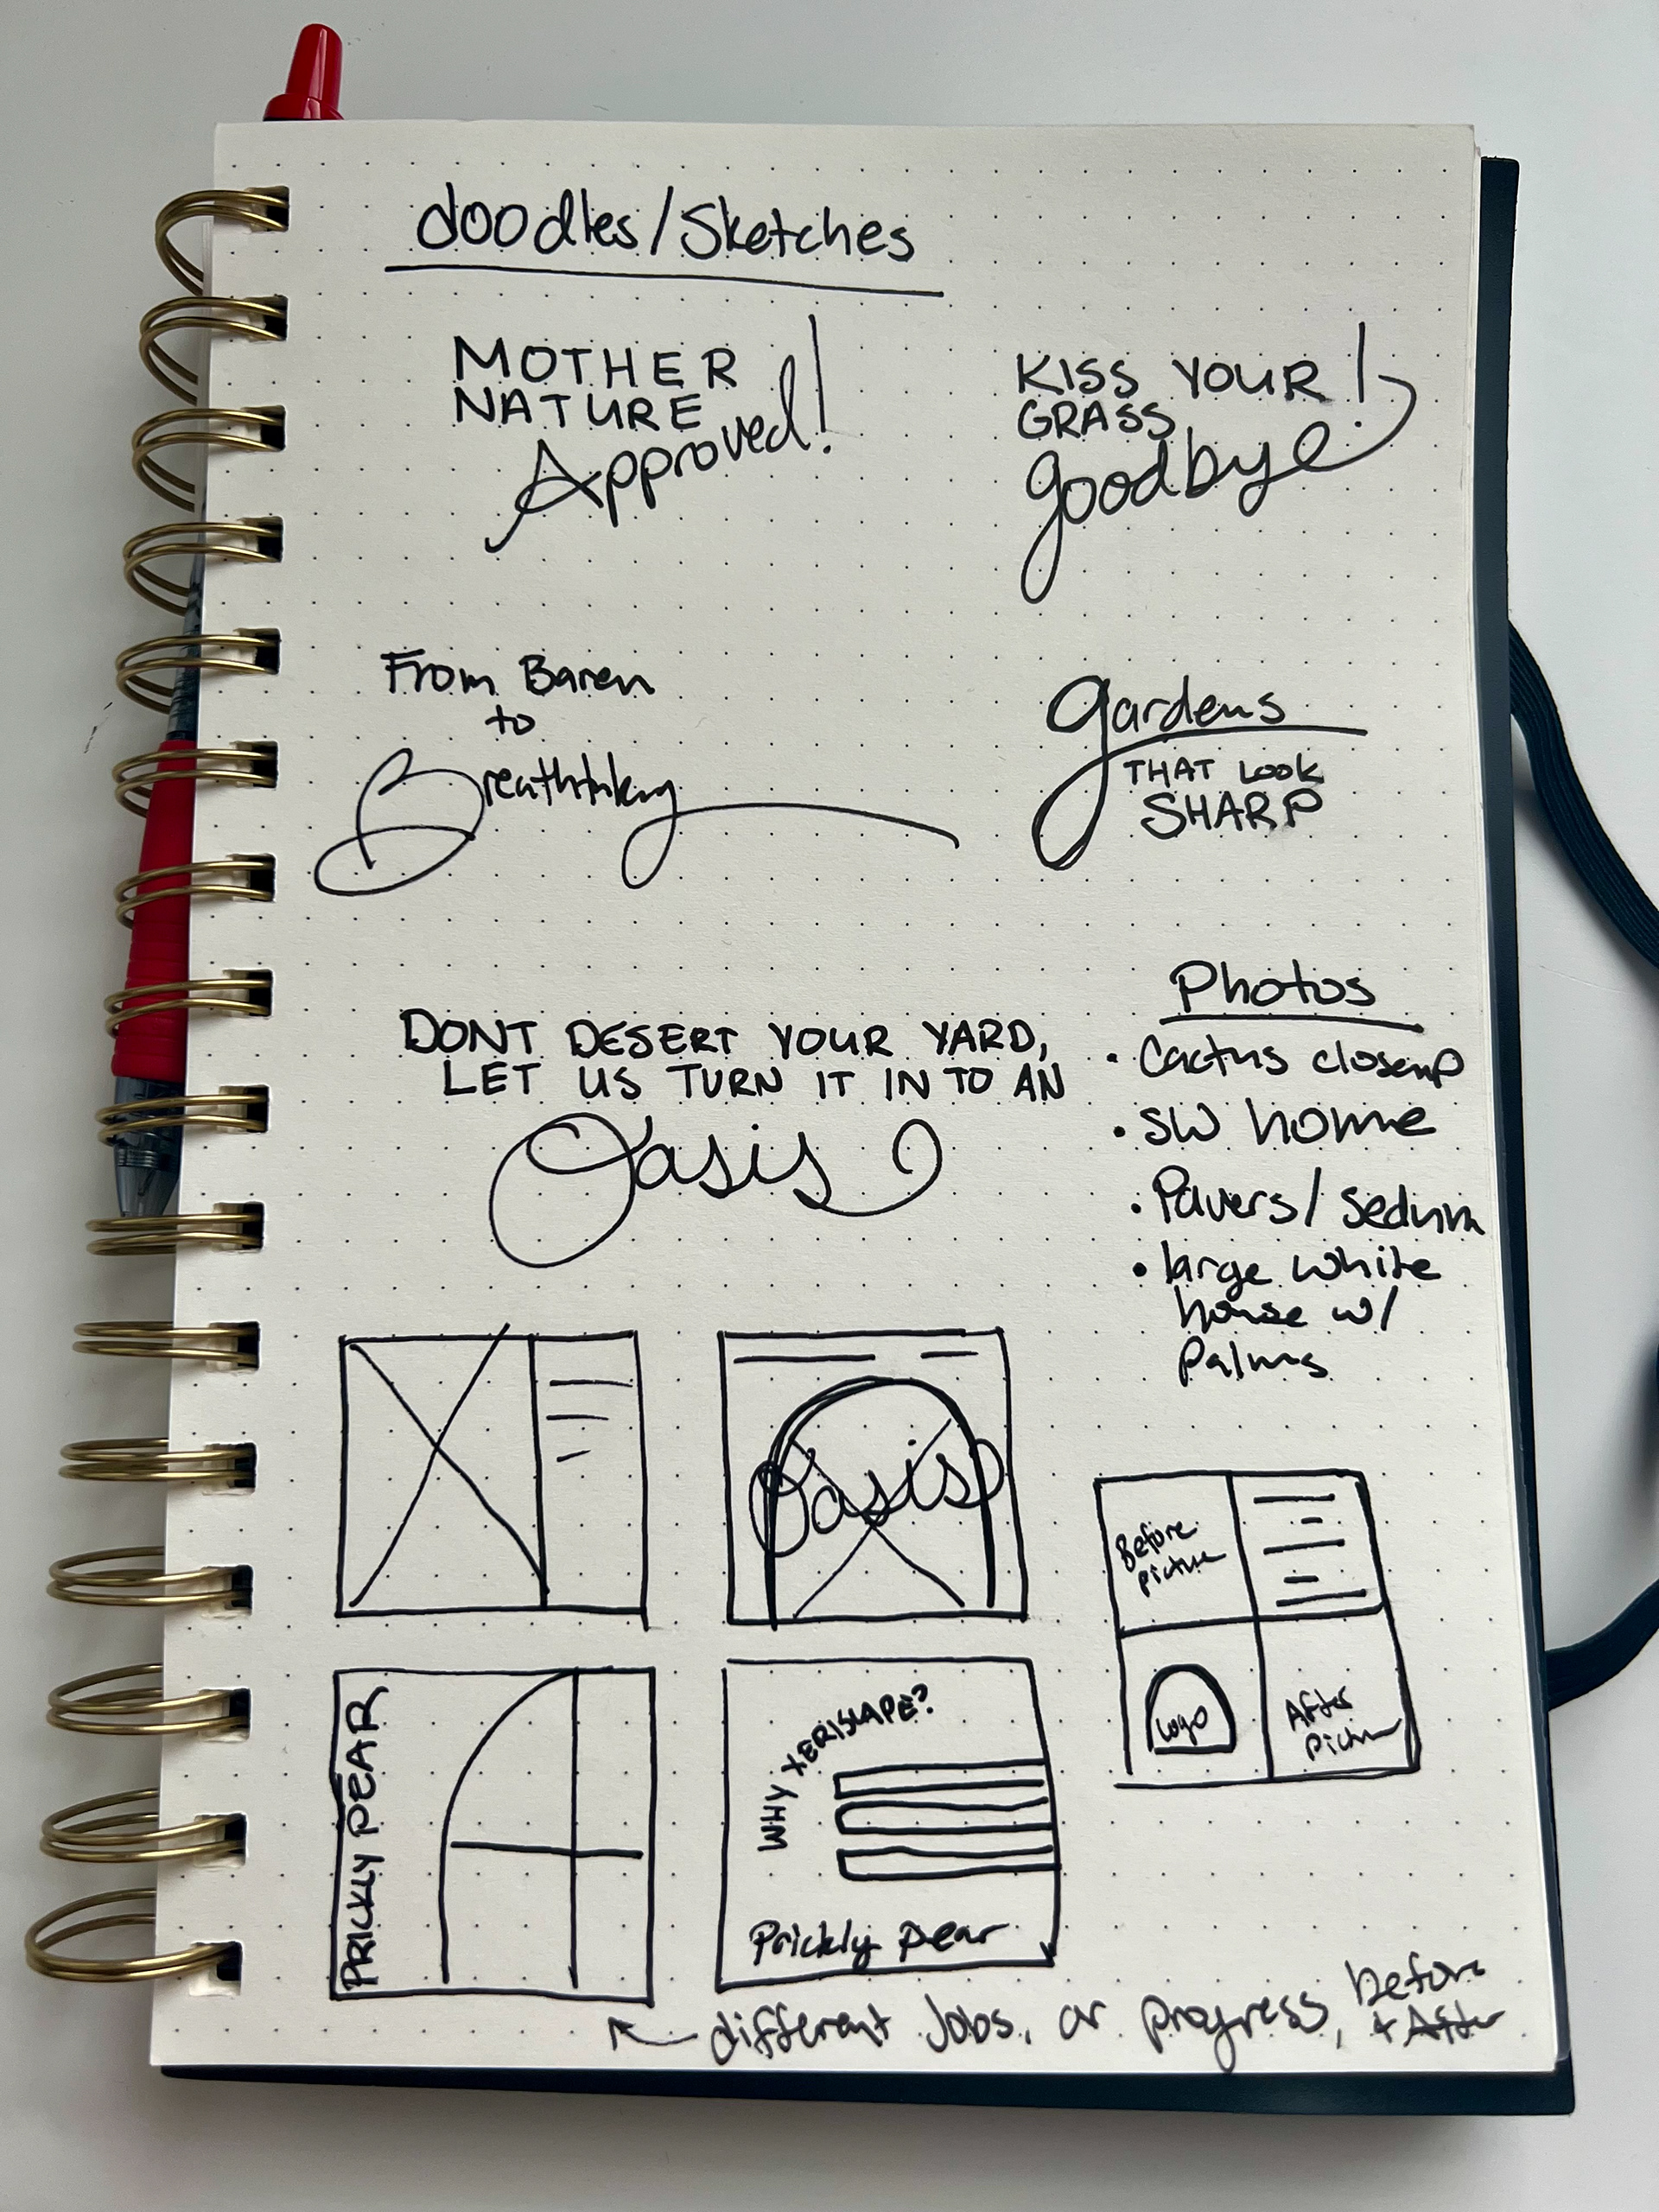 doodles/Sketches
MOTHER
NATURE
Approved!
KISS YOUR!
GRASS
goodbye
From Baren
to
Breathtaking
gardens
THAT LOOK
SHARP
DONT DESERT YOUR YARD,
LET US TURN IT INTO AN
Oasis
Photos
• Cactus closeup
• SW home
• Pavers/Sedum
• large white
house w/
palms
Oasis
Before
picture
Logo
After
Picture
PRICKLY PEAR
WHY XERISCAPE?
Prickly pear
different Jobs, or progress, before
+ After